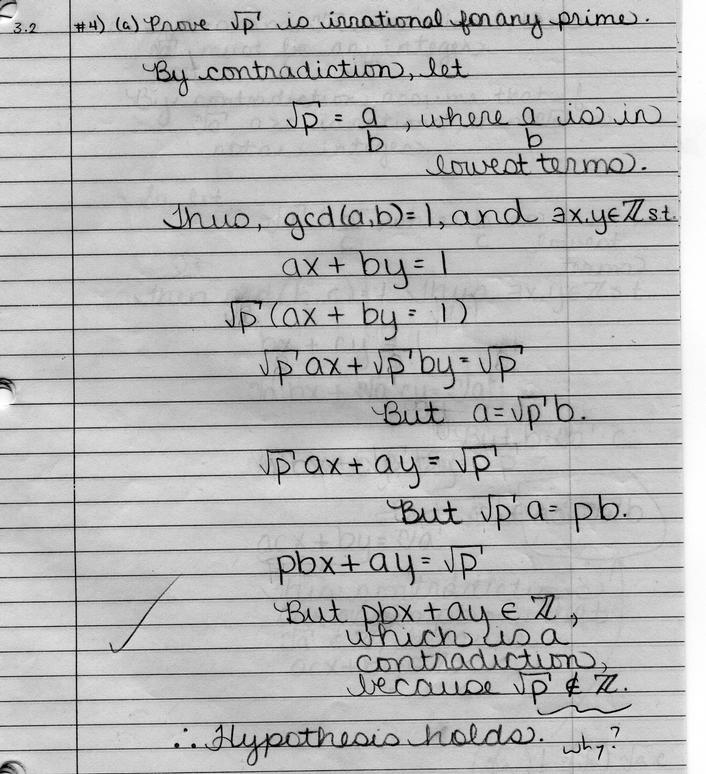 3.2 #4) (a) Prove √p is irrational for any prime.
By contradiction, let
√p = a/b, where a/b is in
lowest terms.
Thus, gcd(a,b)=1, and ∃x,y∈ℤ st.
ax + by = 1
√p (ax + by = 1)
√p ax + √p by = √p
But a=√p b.
√p ax + ay = √p
But √p a = pb.
pbx + ay = √p
But pbx + ay ∈ ℤ,
which is a
contradiction,
because √p ∉ ℤ.
∴ Hypothesis holds. why?